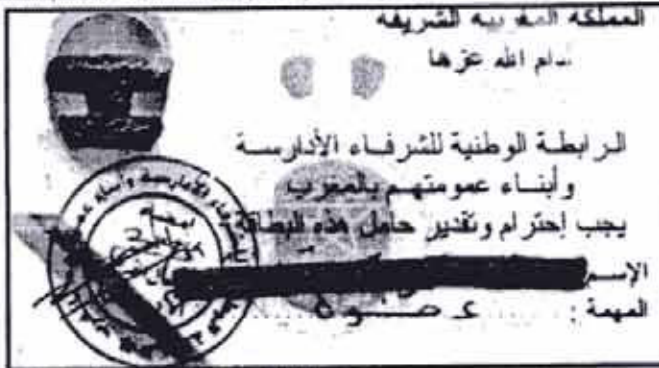 المملكة المغربية الشريفة
الله عزها
الرابطة الوطنية للشرفاء الأدارسة
وأبناء عمومتهم بالمغرب
يجب إحترام وتقدير حامل هذه البطاقة
الإسم
المهمة : عضوة